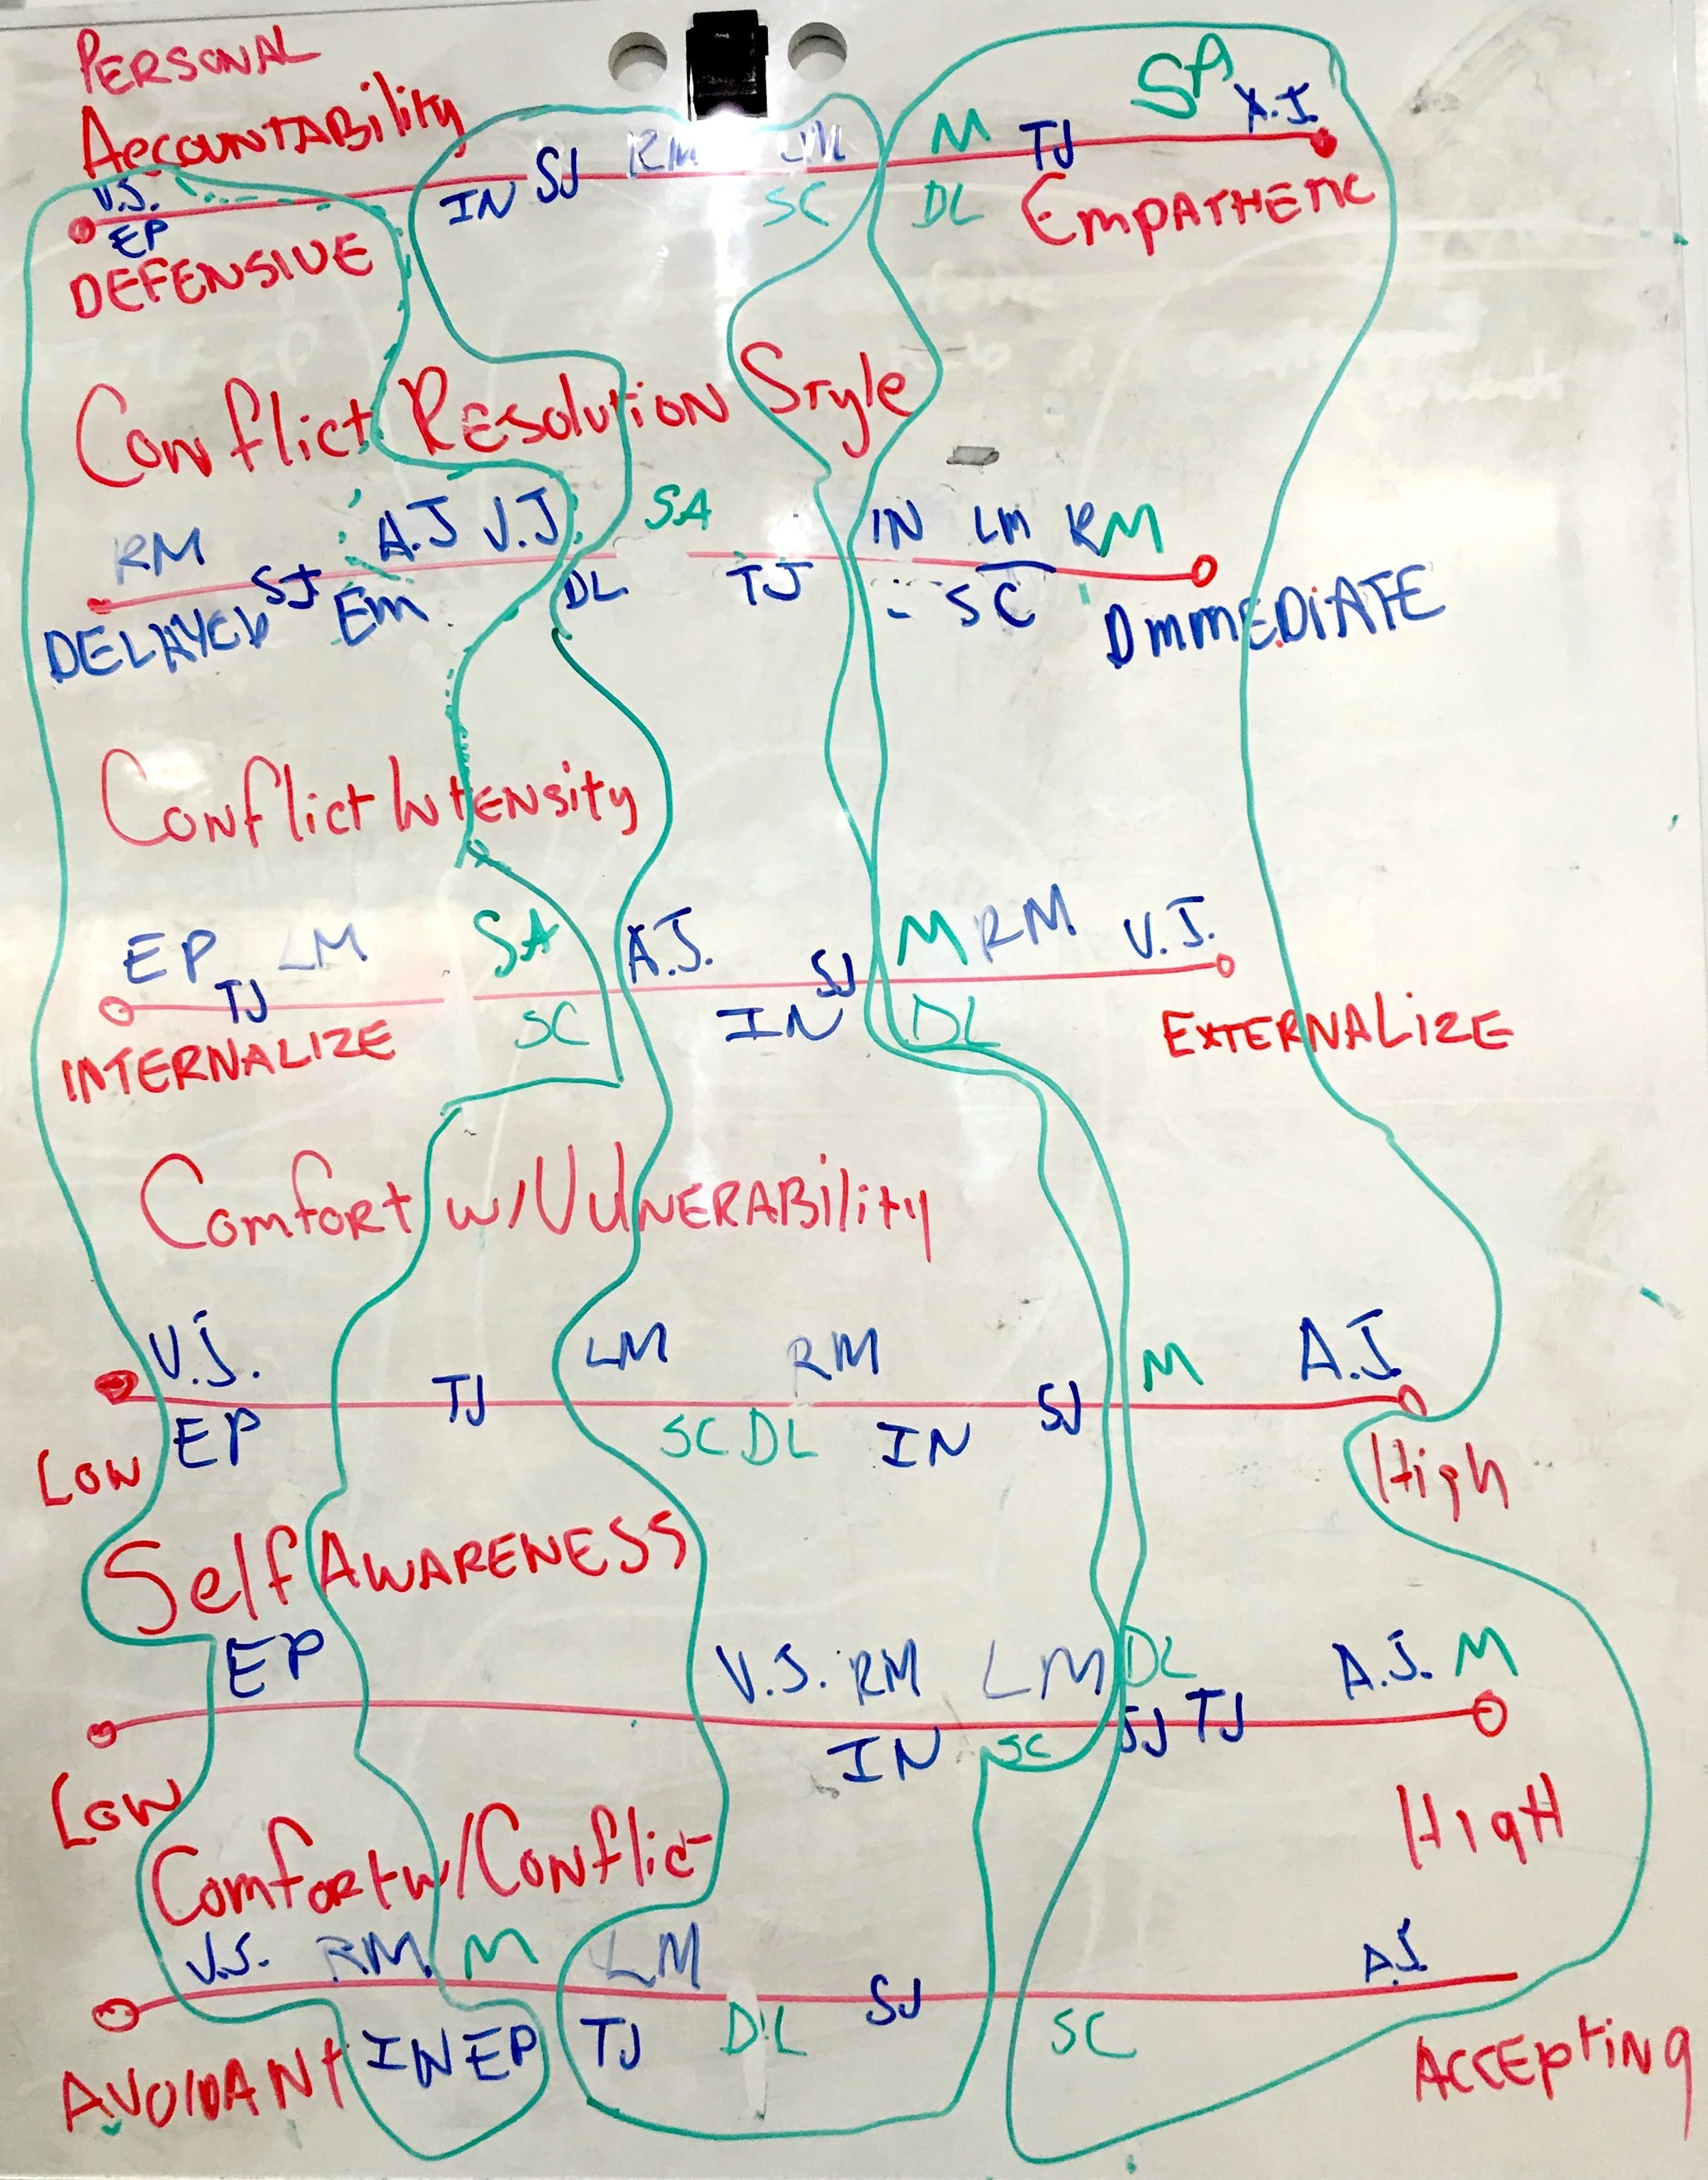 PERSONAL
ACCOUNTABILITY
SA
V.J. IN SJ RM LM M TJ A.J.
EP SC DL
DEFENSIVE EMPATHETIC
Conflict Resolution Style
RM A.J V.J SA IN LM RM
SJ Em DL TJ SC
DELAYED ImmEDiATE
Conflict Intensity
EP LM SA A.J. M RM V.J.
TJ SC IN SJ DL
INTERNALIZE EXTERNALIZE
Comfort w/Vulnerability
V.J. LM RM M A.J.
EP TJ SC DL IN SJ
Low High
Self Awareness
EP V.J. RM LM DL A.J. M
IN SC SJ TJ
Low HigH
Comfort w/Conflict
V.J. RM M LM A.J.
IN EP TJ DL SJ SC
AVOIDANT ACCEPTiNg